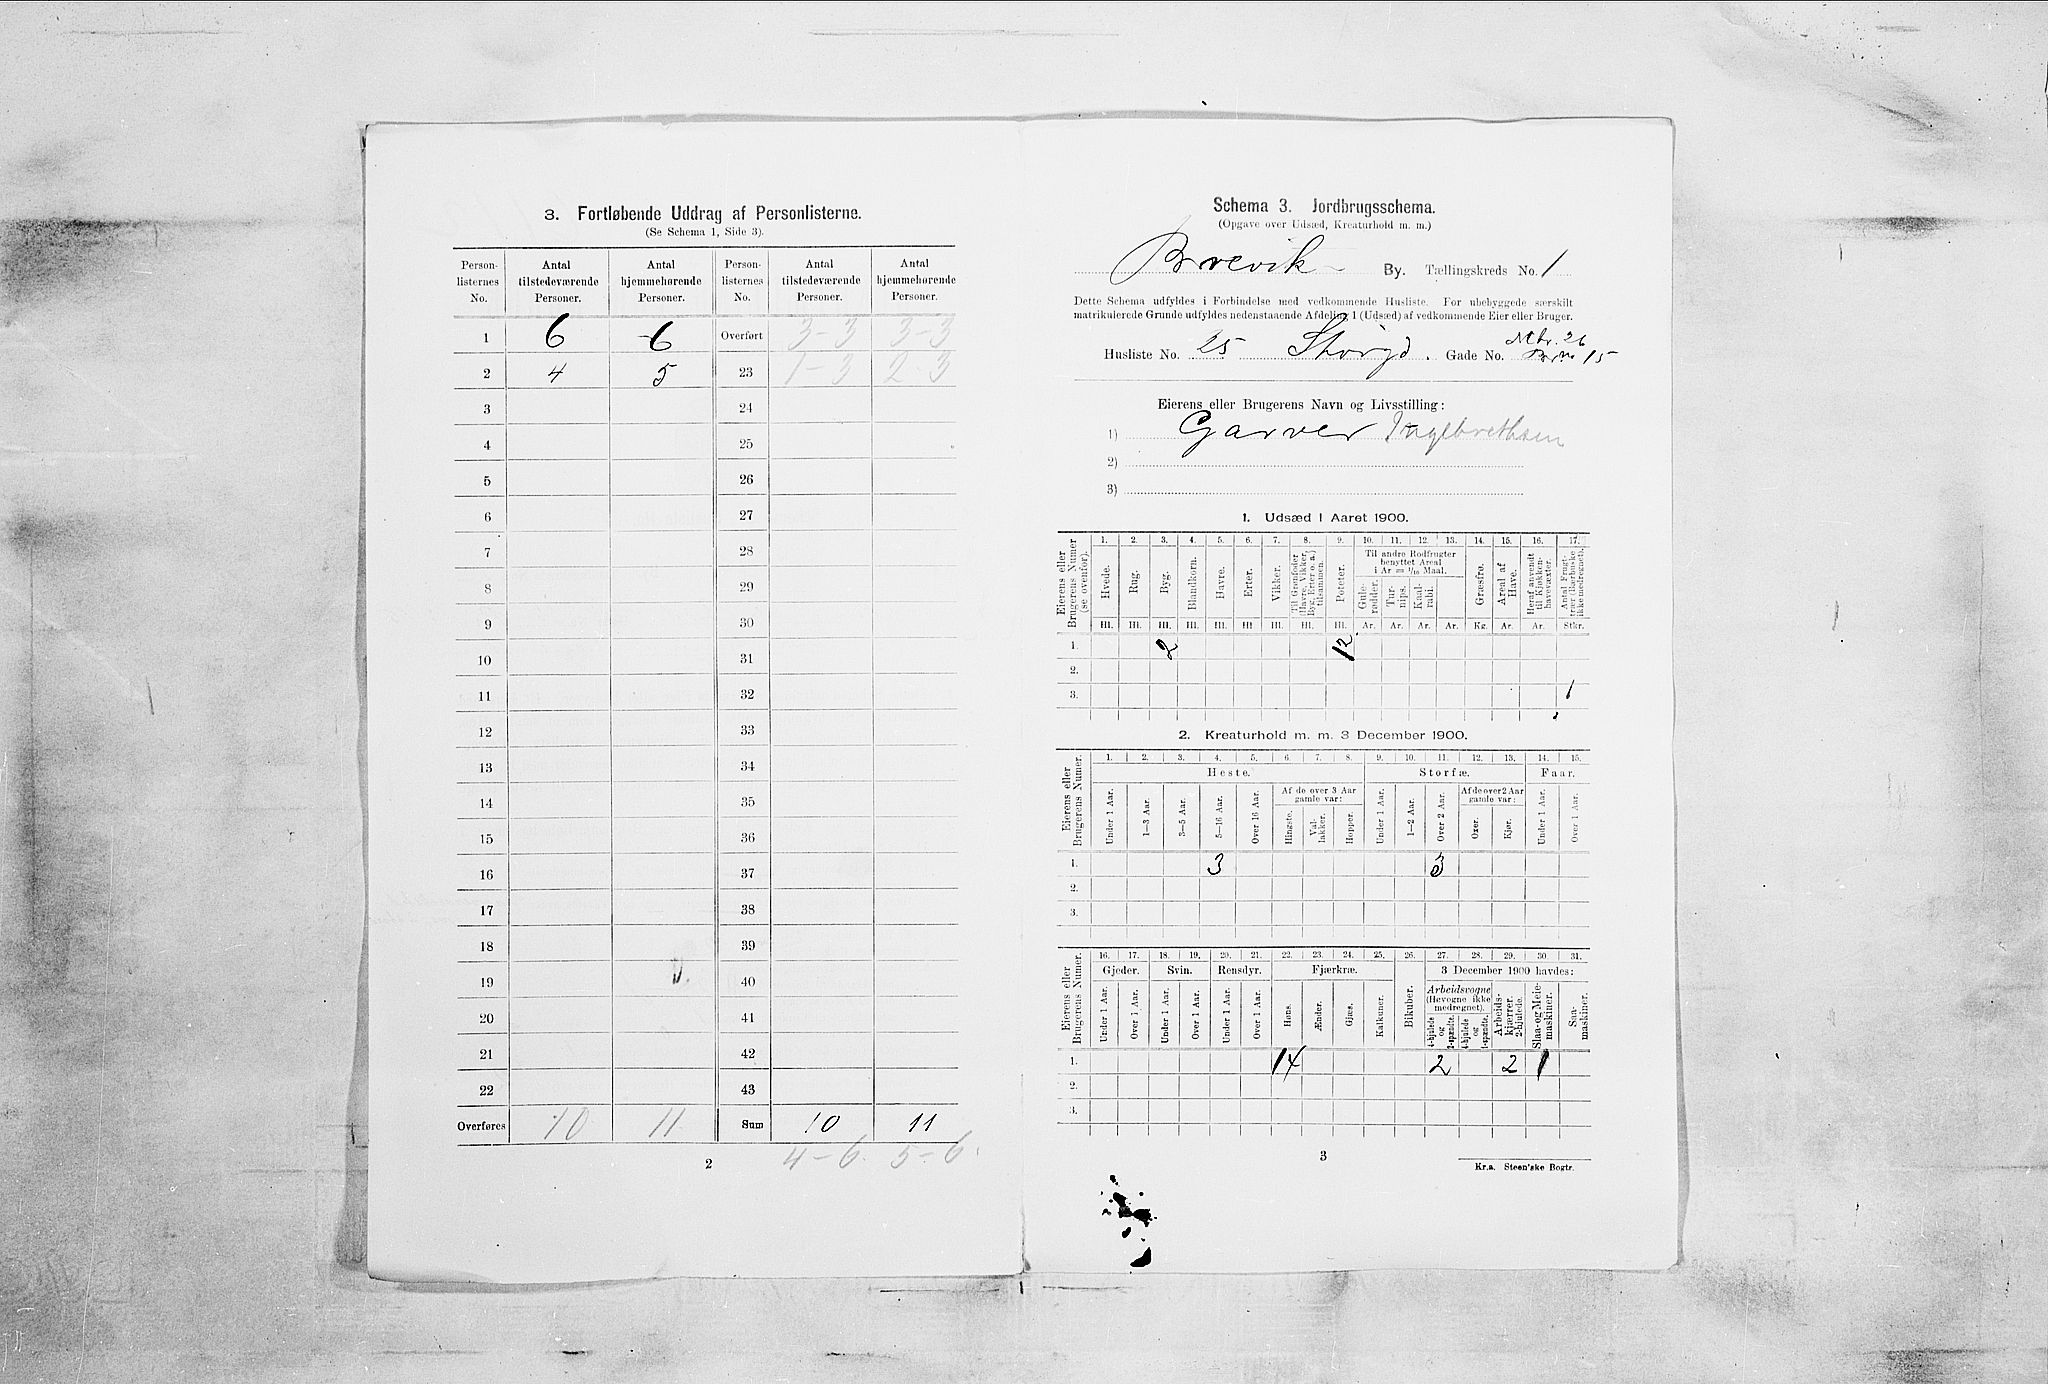 3. Fortløbende Uddrag af Personlisterne.
(Se Schema 1, Side 3).
Person-listernes No. | Antal tilstedeværende Personer. | Antal hjemmehørende Personer. | Person-listernes No. | Antal tilstedeværende Personer. | Antal hjemmehørende Personer.
1 | 6 | 6 | Overført | 3-3 | 3-3
2 | 4 | 5 | 23 | 1-3 | 2-3
3 | 24
4 | 25
5 | 26
6 | 27
7 | 28
8 | 29
9 | 30
10 | 31
11 | 32
12 | 33
13 | 34
14 | 35
15 | 36
16 | 37
17 | 38
18 | 39
19 | 40
20 | 41
21 | 42
22 | 43
Overføres | 10 | 11 | Sum | 10 | 11
4-6. 5-6.
2
Schema 3. Jordbrugsschema.
(Opgave over Udsæd, Kreaturhold m. m.)
Brevik By. Tællingskreds No. 1
Dette Schema udfyldes i Forbindelse med vedkommende Husliste. For ubebyggede særskilt
matrikulerede Grunde udfyldes nedenstaaende Afdeling 1 (Udsæd) af vedkommende Eier eller Bruger.
Mtr. 26
Husliste No. 25 Storgd. Gade No. 15
Eierens eller Brugerens Navn og Livsstilling:
1) Garver Ingebrethsen
2)
3)
1. Udsæd i Aaret 1900.
Eierens eller Brugerens Numer (se ovenfor).
1. 2. 3. 4. 5. 6. 7. 8. 9. 10. 11. 12. 13. 14. 15. 16. 17.
Hvede. Rug. Byg. Blandkorn. Havre. Erter. Vikker. Til Grønfoder (Havre, Vikker, Byg, Erter o. a.) tilsammen. Poteter.
Til andre Rodfrugter benyttet Areal i Ar = 1/10 Maal.
Gule-rødder. Tur-nips. Kaal-rabi. Græsfrø. Areal af Have. Heraf anvendt til Kjøkken-havevæxter. Antal Frugt-træer (Bærbuske ikke medregnet).
Hl. Hl. Hl. Hl. Hl. Hl. Hl. Hl. Hl. Ar. Ar. Ar. Ar. Kg. Ar. Ar. Stkr.
1. 2 12
2.
3. 1
2. Kreaturhold m. m. 3 December 1900.
Eierens eller Brugerens Numer.
1. 2. 3. 4. 5. 6. 7. 8. 9. 10. 11. 12. 13. 14. 15.
Heste. Storfæ. Faar.
Af de over 3 Aar gamle var: Af de over 2 Aar gamle var:
Under 1 Aar. 1—3 Aar. 3—5 Aar. 5—16 Aar. Over 16 Aar. Hingste. Val-lakker. Hopper. Under 1 Aar. 1—2 Aar. Over 2 Aar. Oxer. Kjør. Under 1 Aar. Over 1 Aar.
1. 3 3
2.
3.
Eierens eller Brugerens Numer.
16. 17. 18. 19. 20. 21. 22. 23. 24. 25. 26. 27. 28. 29. 30. 31.
Gjeder. Svin. Rensdyr. Fjærkræ. 3 December 1900 havdes:
Arbeidsvogne (Hevogne ikke medregnet).
Under 1 Aar. Over 1 Aar. Under 1 Aar. Over 1 Aar. Under 1 Aar. Over 1 Aar. Høns. Ænder. Gjæs. Kalkuner. Bikuber. 4-hjulede og 2-spændte. 4-hjulede og 1-spændte. Arbeids-kjærrer. 2-hjulede. Slaa- og Meie-maskiner. Saa-maskiner.
1. 14 2 2 1
2.
3.
3
Kr.a. Steen'ske Bogtr.